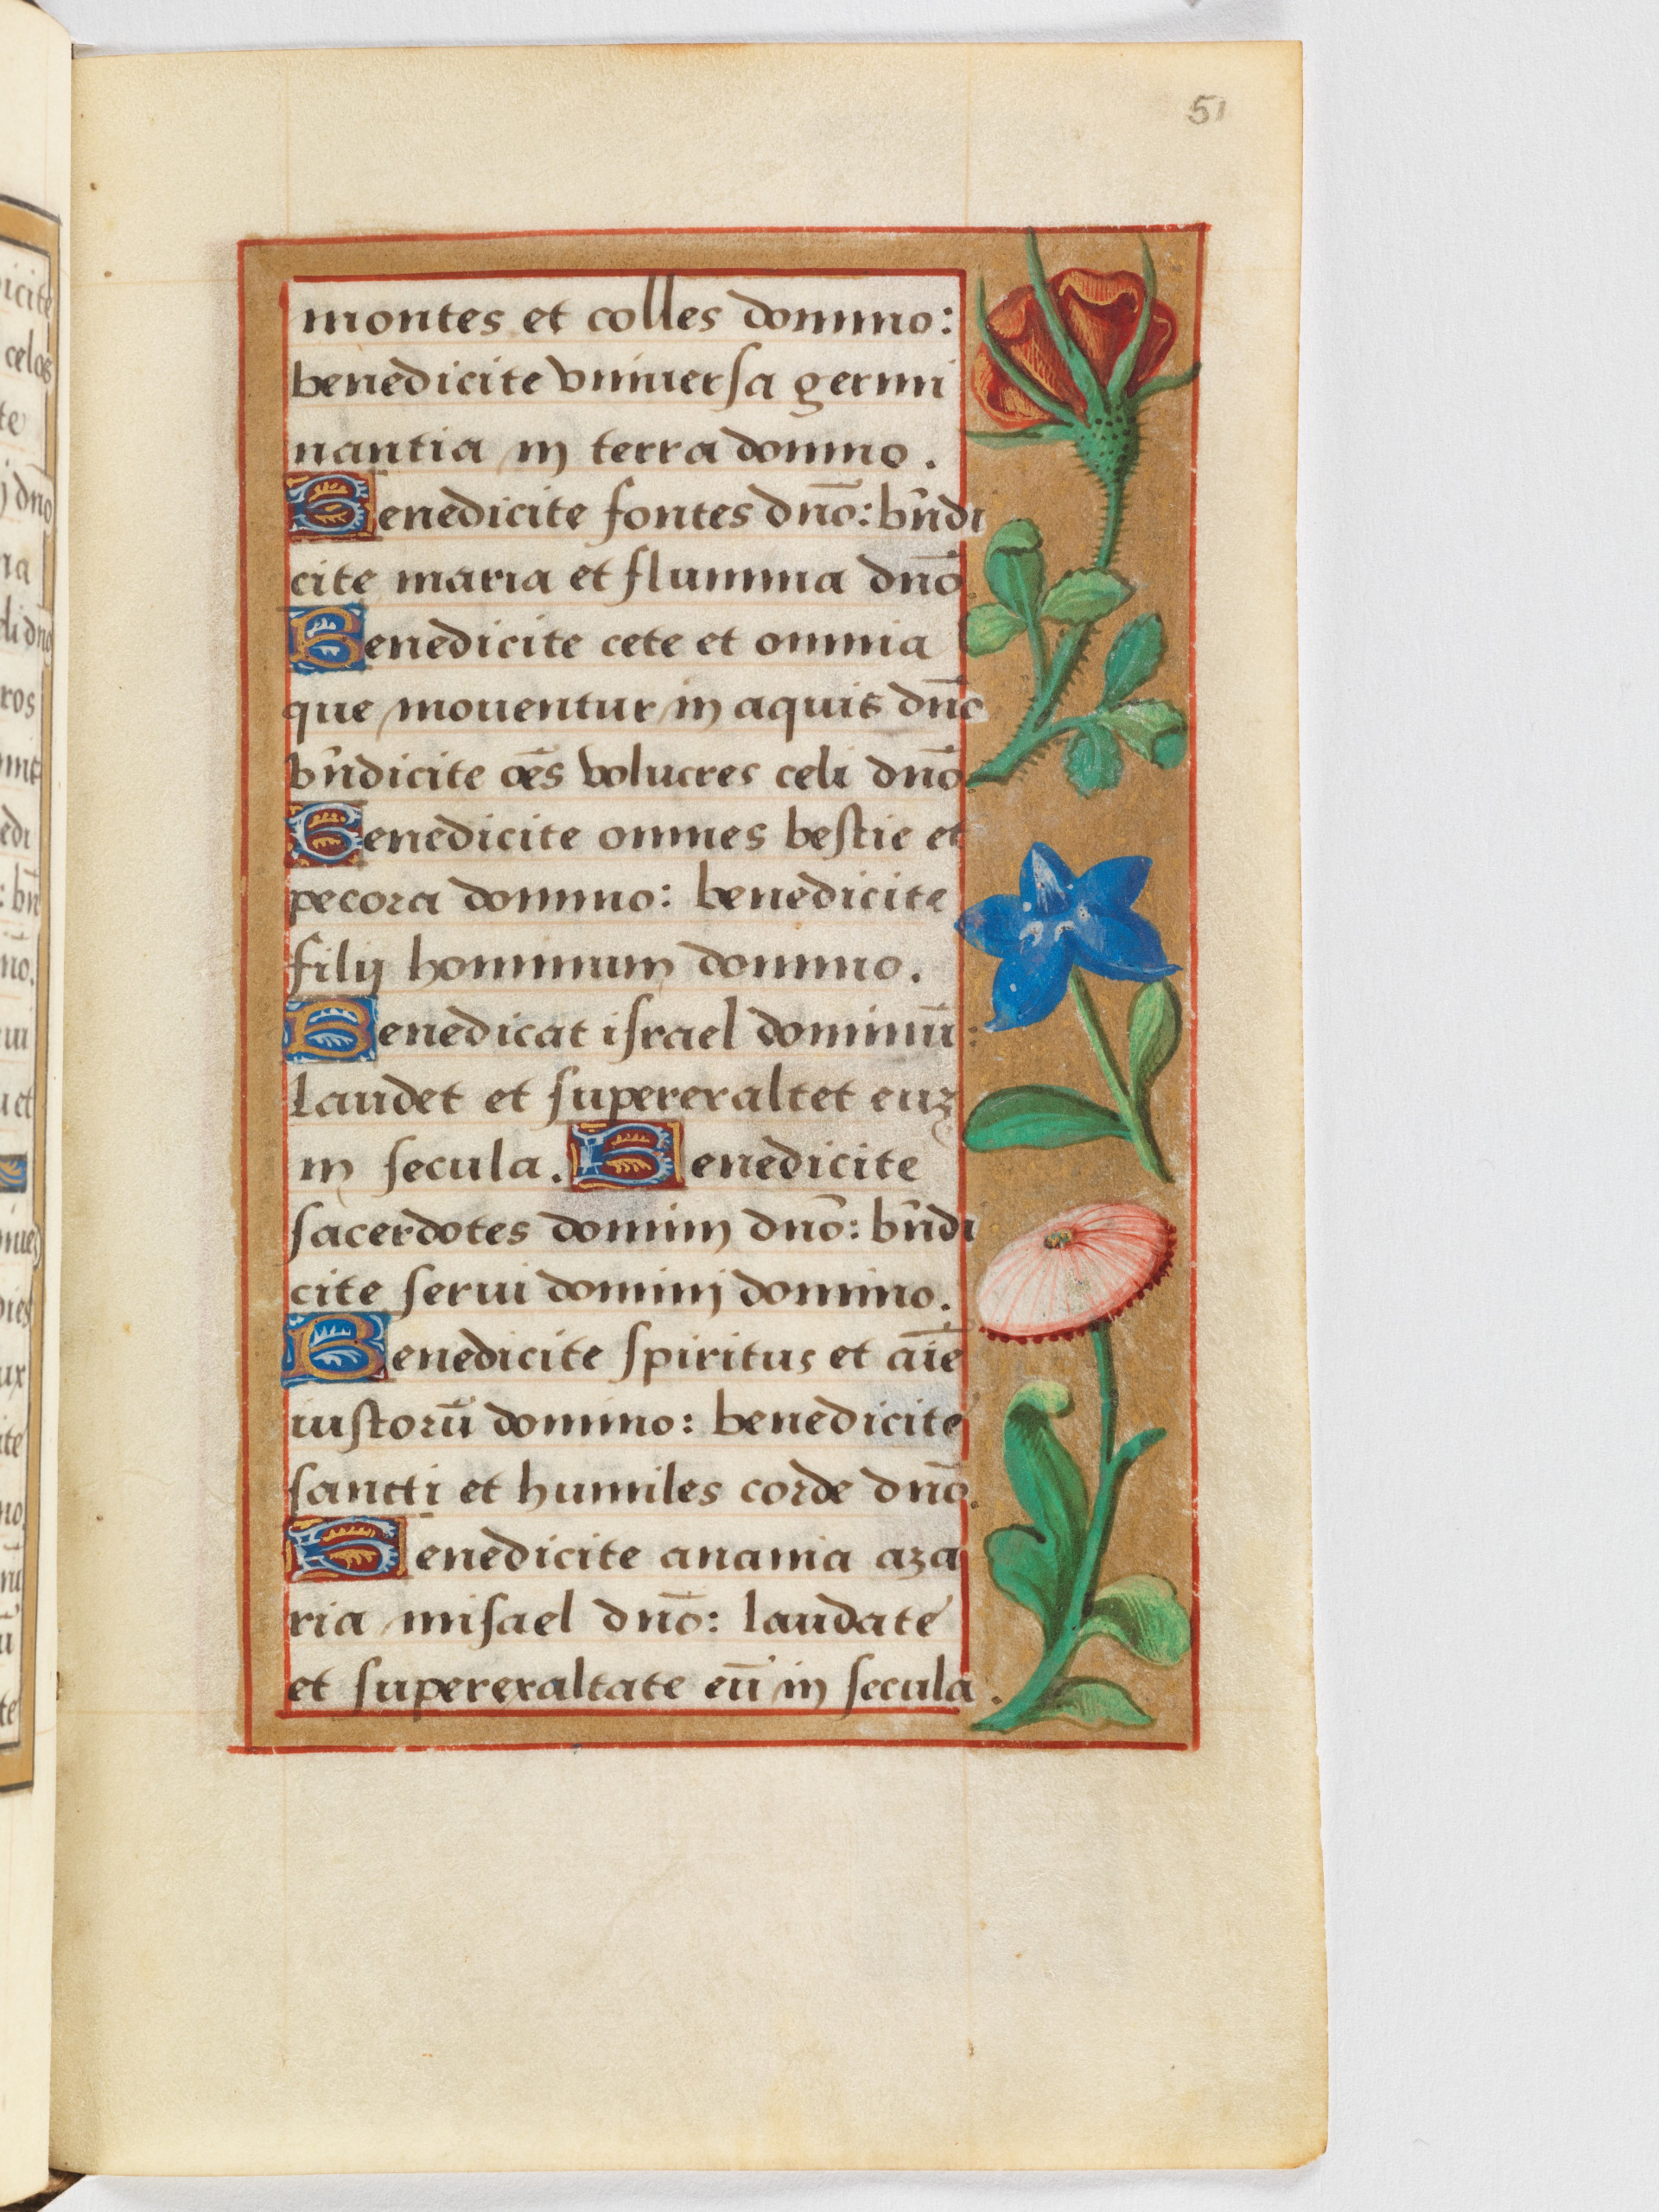 51
montes et colles domino:
benedicite vniuersa germi
nantia in terra domino.
Benedicite fontes dnō: bn̄di
cite maria et flumina dnō.
Benedicite cete et omnia
que mouentur in aquis dnō
bn̄dicite oēs volucres celi dnō.
Benedicite omnes bestie et
pecora domino: benedicite
filij hominum domino.
Benedicat israel dominū:
laudet et superexaltet euʒ
in secula. Benedicite
sacerdotes domini dnō: bn̄di
cite serui domini domino.
Benedicite spiritus et aīe
iustorū domino: benedicite
sancti et humiles corde dnō.
Benedicite anania aza
ria misael dnō: laudate
et superexaltate eū in secula.